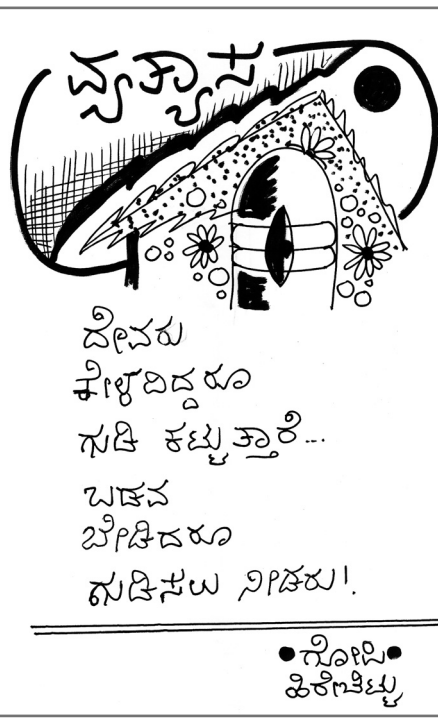 ವ್ಯತ್ಯಾಸ
ದೇವರು
ಕೇಳದಿದ್ದರೂ
ಗುಡಿ ಕಟ್ಟುತ್ತಾರೆ...
ಬಡವ
ಬೇಡಿದರೂ
ಗುಡಿಸಲು ನೀಡರು!.
ಗೋಪಿ
ಹಿರೇಬೆಟ್ಟು